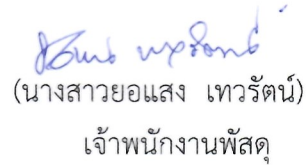 (นางสาวยอแสง เทวรัตน์)
เจ้าพนักงานพัสดุ